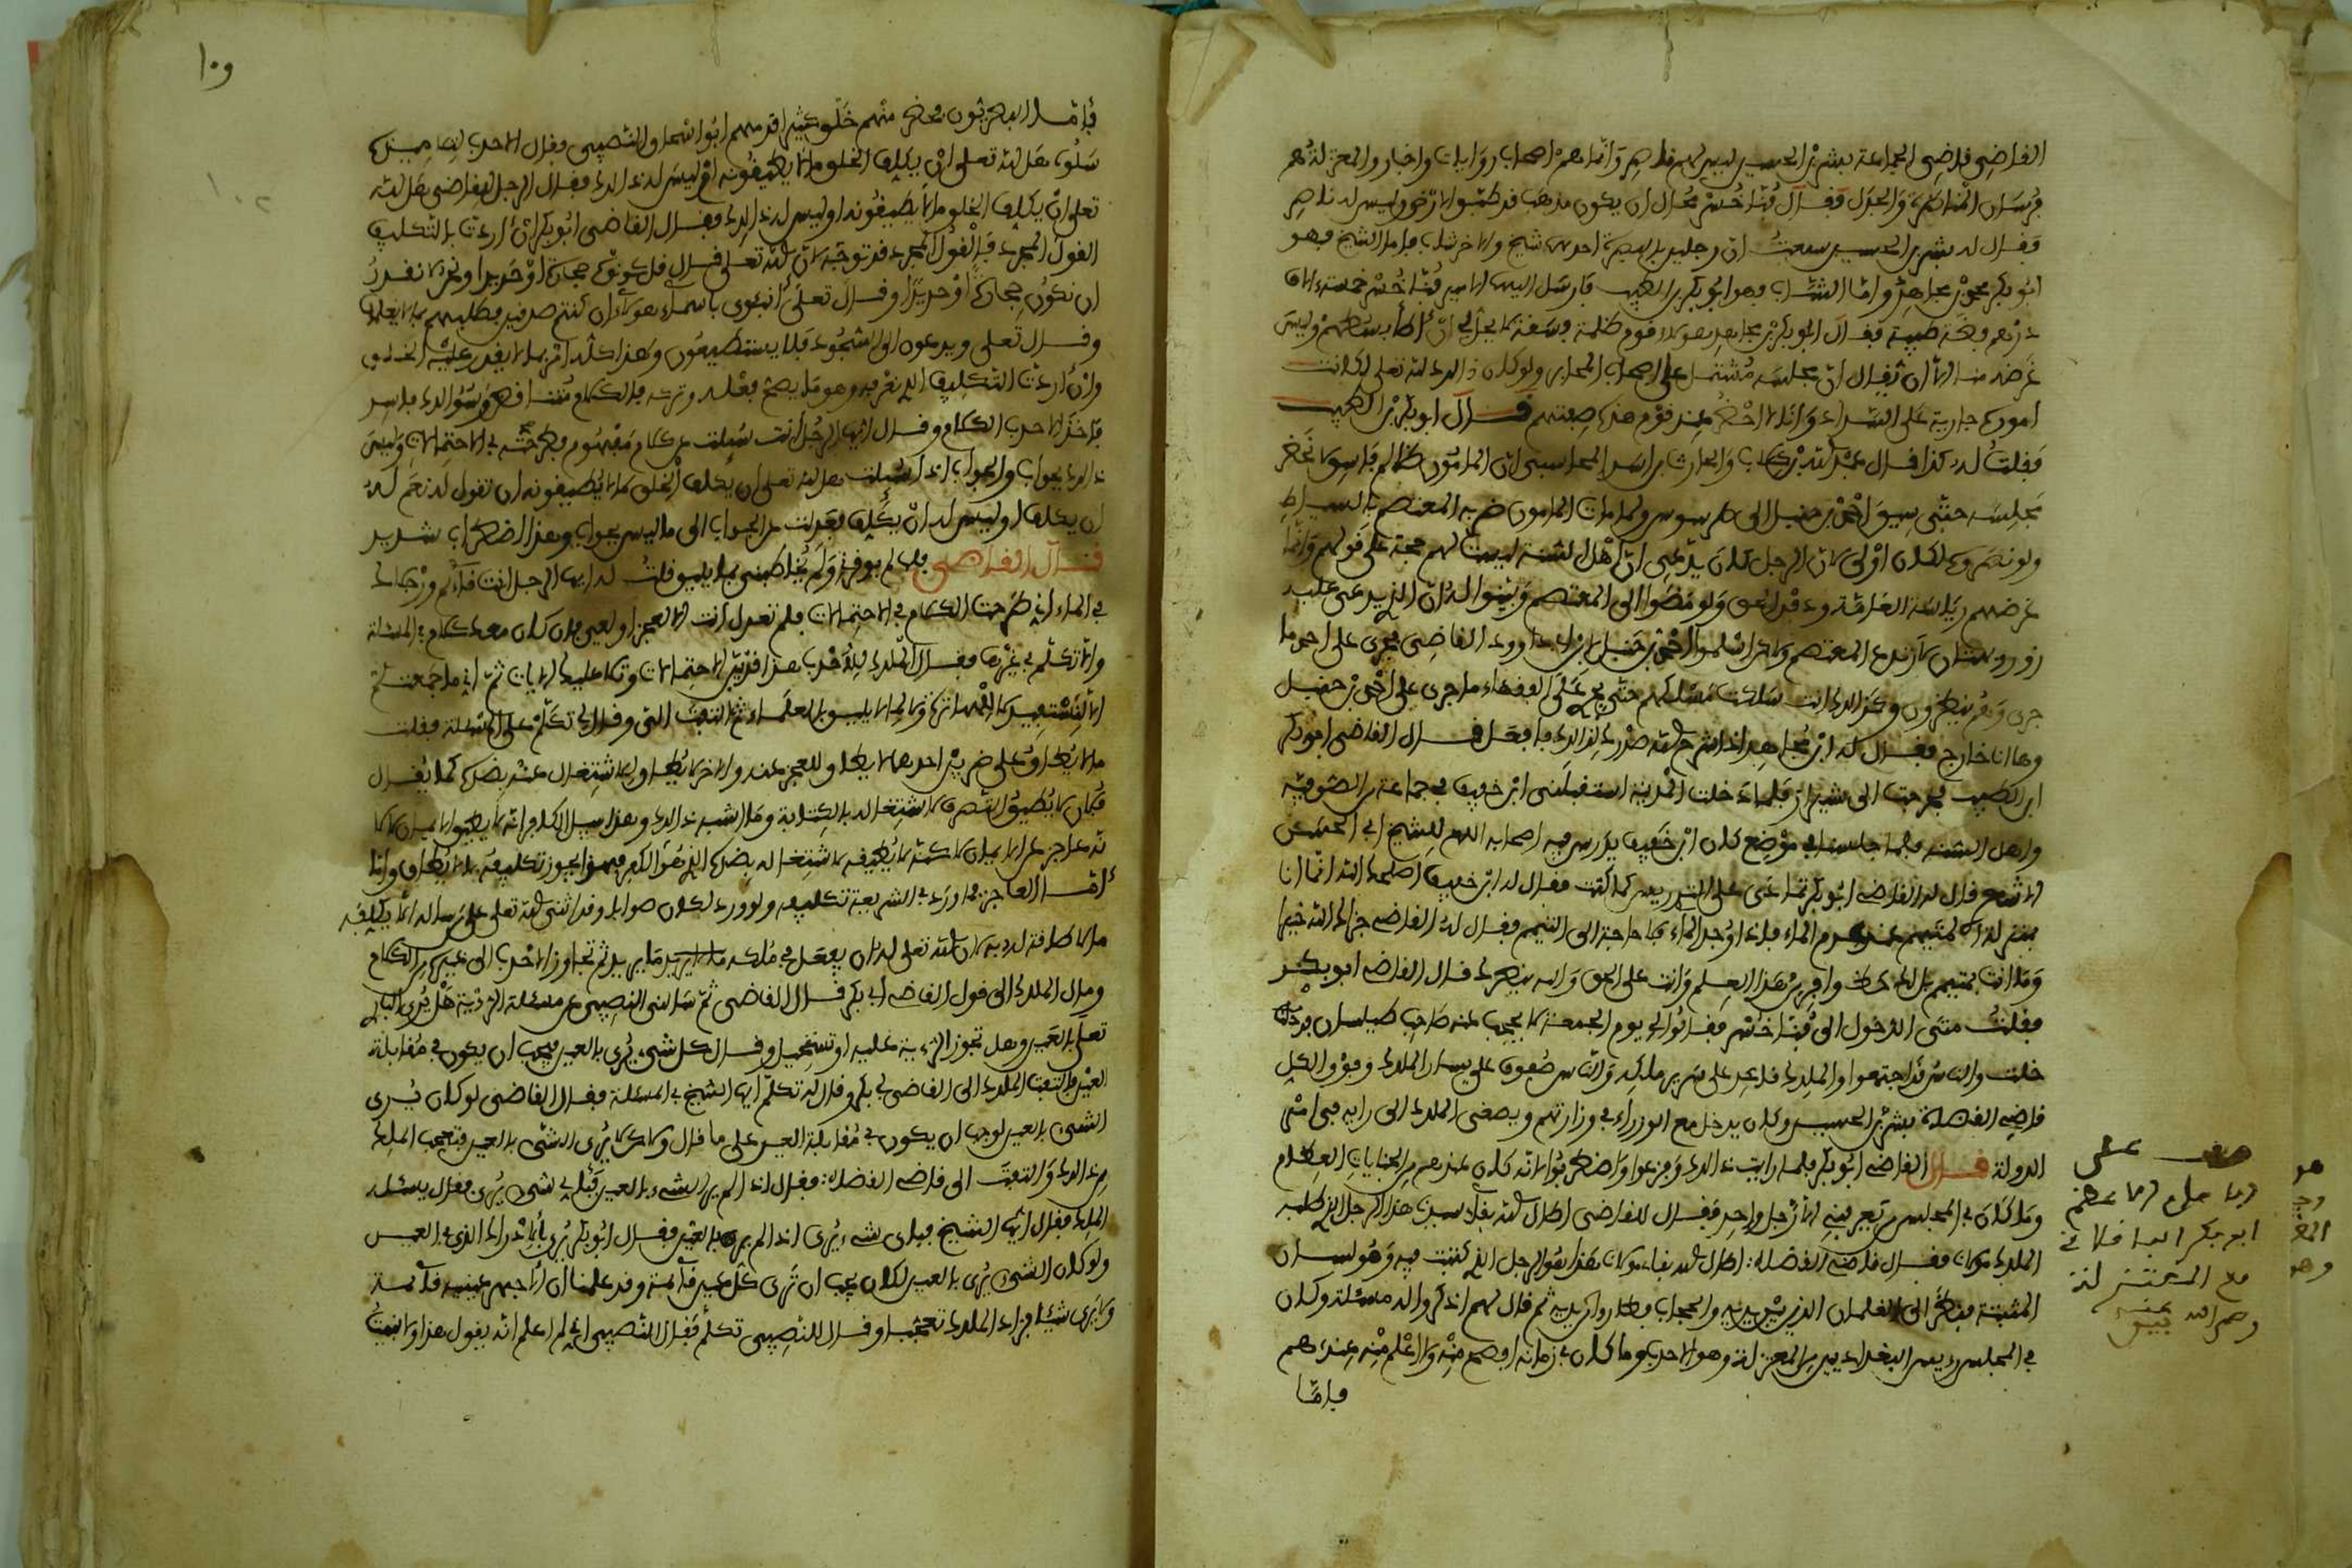 القاضي قاضي الجماعة بشر بن الحسين ليس لهم ناصر وانما هم اصحاب روايات واخبار والمعتزلة هم
فرسان المناظرة والجدل فقال فنا خسر محال ان يكون مذهب قد طبق الارض وليس له ناصر
فقال له بشر بن الحسين سمعت ان رجلين بالبصرة احدهما شيخ والاخر شاب فاما الشيخ فهو
ابو بكر بن مجاهد واما الشاب فهو ابو بكر بن الطيب فارسل اليهما الامير فنا خسر خمسة الاف
درهم فضة طيبة فقال ابو بكر بن مجاهد هولاء قوم ظلمة فسقة لا يحل لي ان اطأ بسطهم وليس
غرضه منا الا ان يقال ان مجلسه مشتمل على اصحاب المحابر ولو كان ذالك لله تعلى لكانت
اموره جارية على السداد وانا لا احضر عند قوم هذه صفتهم قال ابو بكر بن الطيب
فقلت له كذا قال عبد الله بن كلاب والحارث بن اسد المحاسبي ان المامون ظالم فاسق لا نحضر
مجلسه حتى سيق احمد بن حنبل الى طرسوس ولما مات المامون ضربه المعتصم بالسياط
ولو نصروه لكان اولى لان الرجل كان يدعي ان اهل السنة ليست لهم حجة على قولهم وانما
غرضهم رياسة العامة ودفع الحق ولو مضوا الى المعتصم وبينوا له ان الذي يدعى عليه
زور وبهتان لارتدع المعتصم ولاكن اسلموا احمد بن حنبل لابن ابي داوود القاضي فجرى على احمد ما
جرى وهم ينظرون وكذالك انت سلكت مسلكهم حتى يجري على الفقهاء ما جرى على احمد بن حنبل
وها انا خارج فقال له ابن مجاهد اذا شرح الله صدرك لذالك فافعل قال القاضي ابو بكر
ابن الطيب فخرجت الى شيراز فلما دخلت المدينة استقبلني ابن خفيف في جماعة من الصوفية
واهل السنة فلما جلسنا في موضع كان ابن خفيف يدرس فيه اصحابه اللمع للشيخ ابي الحسن
الاشعري قال له القاضي ابو بكر تمادى على التدريس كما كنت فقال له ابن خفيف اصلحك الله انما انا
بمنزلة المتيمم عند عدم الماء فاذا وجد الماء فلا حاجة الى التيمم فقال له القاضي جزاك الله خيرا
وما انت بمتيمم بل لك حظ وافر من هذا العلم وانت على الحق والله ينصرك قال القاضي ابو بكر
فقلت متى الدخول الى فنا خسر فقالوا لي يوم الجمعة لا يحجب عنه صاحب طيلسان فد
خلت والناس قد اجتمعوا والملك قاعد على سرير ملكه والناس صفوف على يسار الملك وفوق الكل
قاضي القضاة بشر بن الحسين وكان يدخل مع الوزراء في وزارتهم ويصغي الملك الى رايه في امر
الدولة قال القاضي ابو بكر فلما رايت ذالك
وما كان في المجلس من يعرفني الا رجل واحد فقال للقاضي اطال الله بقاء سيدنا هذا الرجل الذي طلبه
الملك مولانا فقال قاضي القضاة: اطال الله بقاء مولانا هذا هو الرجل الذي كتبت فيه وهو لسان
المثبتة فنظر الى الغلمان الذين بين يديه والحجاب فطاروا من بين يديه ثم قال لهم اذكروا له مسئلة وكان
في المجلس رءيس البغداديين من المعتزلة وهو الاحدب وما كان في زمانه افصح منه ولا اعلم منه عندهم
فاما
ابو بكر الباقلاني
مع المعتزلة
رحمه الله
١٠٢
فاما البصريون فحضر منهم خلق كثير اقدمهم ابو اسحاق النصيبي فقال الاحدب لتلاميذه
سلوه هل لله تعلى ان يكلف الخلق ما لا يطيقونه ام ليس له ذالك فقال الرجل للقاضي هل لله
تعلى ان يكلف الخلق ما لا يطيقونه او ليس له ذالك فقال القاضي ابو بكر ان اردت بالتكليف
القول المجرد فالقول المجرد قد توجه لان الله تعلى قال قل كونوا حجارة او حديدا ونحن لا نقدر
ان نكون حجارة او حديدا وقال تعلى انبئوني باسماء هولاء ان كنتم صدقين فطلبهم بما لا يعلمون
وقال تعلى ويدعون الى السجود فلا يستطيعون وهذا كله امر بما لا يقدر عليه الخلق
وان اردت التكليف الذي نعرفه وهو ما يصح فعله وتركه فالكلام متناقض وسؤالك فاسد
فاخذ الاحدب الكلام وقال ايها الرجل انت سئلت عن كلام مفهوم فطرحته في الاحتمالات وليس
ذالك بجواب والجواب اذا سئلت هل لله تعلى ان يكلف الخلق ما لا يطيقونه ان تقول له نعم له
ان يكلف او ليس له ان يكلف فعدلت عن الجواب الى ما ليس بجواب وهذا اضطراب شديد
قال القاضي فلما لم يوقرني ولم يخاطبني بما يليق قلت له ايها الرجل انت نائم ورجلاك
في الماء اني طرحت الكلام في الاحتمالات فلم تعدل انت الا للعجز او لعي فان كان معك كلام في المسئلة
والا تكلم في غيرها فقال الملك للاحدب هذا قد بين الاحتمالات وتلا عليك الايات ثم اني ما جمعتكم
الا لنستفيد لا للمهاترة ولا لما لا يليق بالعلماء ثم التفت الي وقال لي تكلم على المسئلة فقلت
ما لا يطاق على ضربين احدهما لا يطاق للعجز عنه والاخر لا يطاق للاشتغال عنه بضده كما يقال
فلان لا يطيق التصرف لاشتغاله بالكتابة وما اشبه ذالك وهذا سبيل الكافر انه لا يطيق الايمان لا لا
نه عاجز عن الايمان لاكنه لا يطيقه لاشتغاله بضده الذي هو الكفر فهذا يجوز تكليفه بما لا يطاق واما
اما العاجز فما ورد في الشريعة تكليفه ولو ورد لكان صوابا وقد اثنى الله تعلى على من ساله الا يكلفه
ما لا طاقة له به لان الله تعلى له ان يفعل في ملكه ما يريد ثم تجاوز الاحدب الى غيره من الكلام
ومال الملك الى قول القاضي ابي بكر قال القاضي ثم سالني النصيبي عن مسئلة الرؤية هل يرى الباري
تعلى بالعين وهل تجوز الرءية عليه او تستحيل وقال كل شيء يرى بالعين فيجب ان يكون في مقابلة
العين فالتفت الملك الى القاضي ابي بكر وقال له تكلم ايها الشيخ في المسئلة فقال القاضي لو كان يرى
الشيئ بالعين لوجب ان يكون في مقابلة العين على ما قال ولاكن لا يرى الشئ بالعين فتعجب الملك
من ذالك والتفت الى قاضي القضاة: فقال اذا لم ير الشيء بالعين فبأي شيء يرى فقال يسئله
الملك فقال ايها الشيخ فباي شيء يرى اذا لم ير بالعين فقال ابو بكر يرى بالادراك الذي في العين
ولو كان الشيئ يرى بالعين لكان يجب ان ترى كل عين قائمة وقد علمنا ان الاجهر عينه قائمة
ولا يرى شيئا فزاد الملك تعجبا وقال للنصيبي تكلم فقال النصيبي اني لم اعلم انه يقول هذا ولا بنيت